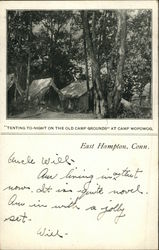 "TENTING TO-NIGHT ON THE OLD CAMP GROUNDS" AT CAMP WOPOWOG,
East Hampton, Conn.
Uncle Will-
Are living in a tent
now. It is quite novel.
Am in with a jolly
set.
Will-